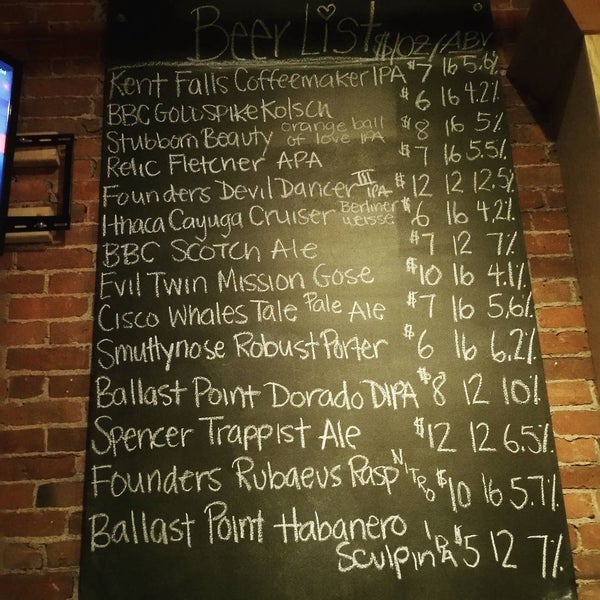 Beer List $/oz/ABV
Kent Falls Coffeemaker IPA $7 16 5.6%
BBC Goldspike Kolsch $6 16 4.2%
Stubborn Beauty orange ball of love IPA $8 16 5%
Relic Fletcher APA $7 16 5.5%
Founders Devil Dancer III IPA $12 12 12.5%
Ithaca Cayuga Cruiser Berliner weisse $6 16 4.2%
BBC Scotch Ale $7 12 7%
Evil Twin Mission Gose $10 16 4.1%
Cisco Whales Tale Pale Ale $7 16 5.6%
Smuttynose Robust Porter $6 16 6.2%
Ballast Point Dorado DIPA $8 12 10%
Spencer Trappist Ale $12 12 6.5%
Founders Rubaeus Rasp NITRO $10 16 5.7%
Ballast Point Habanero
Sculpin IPA $5 12 7%